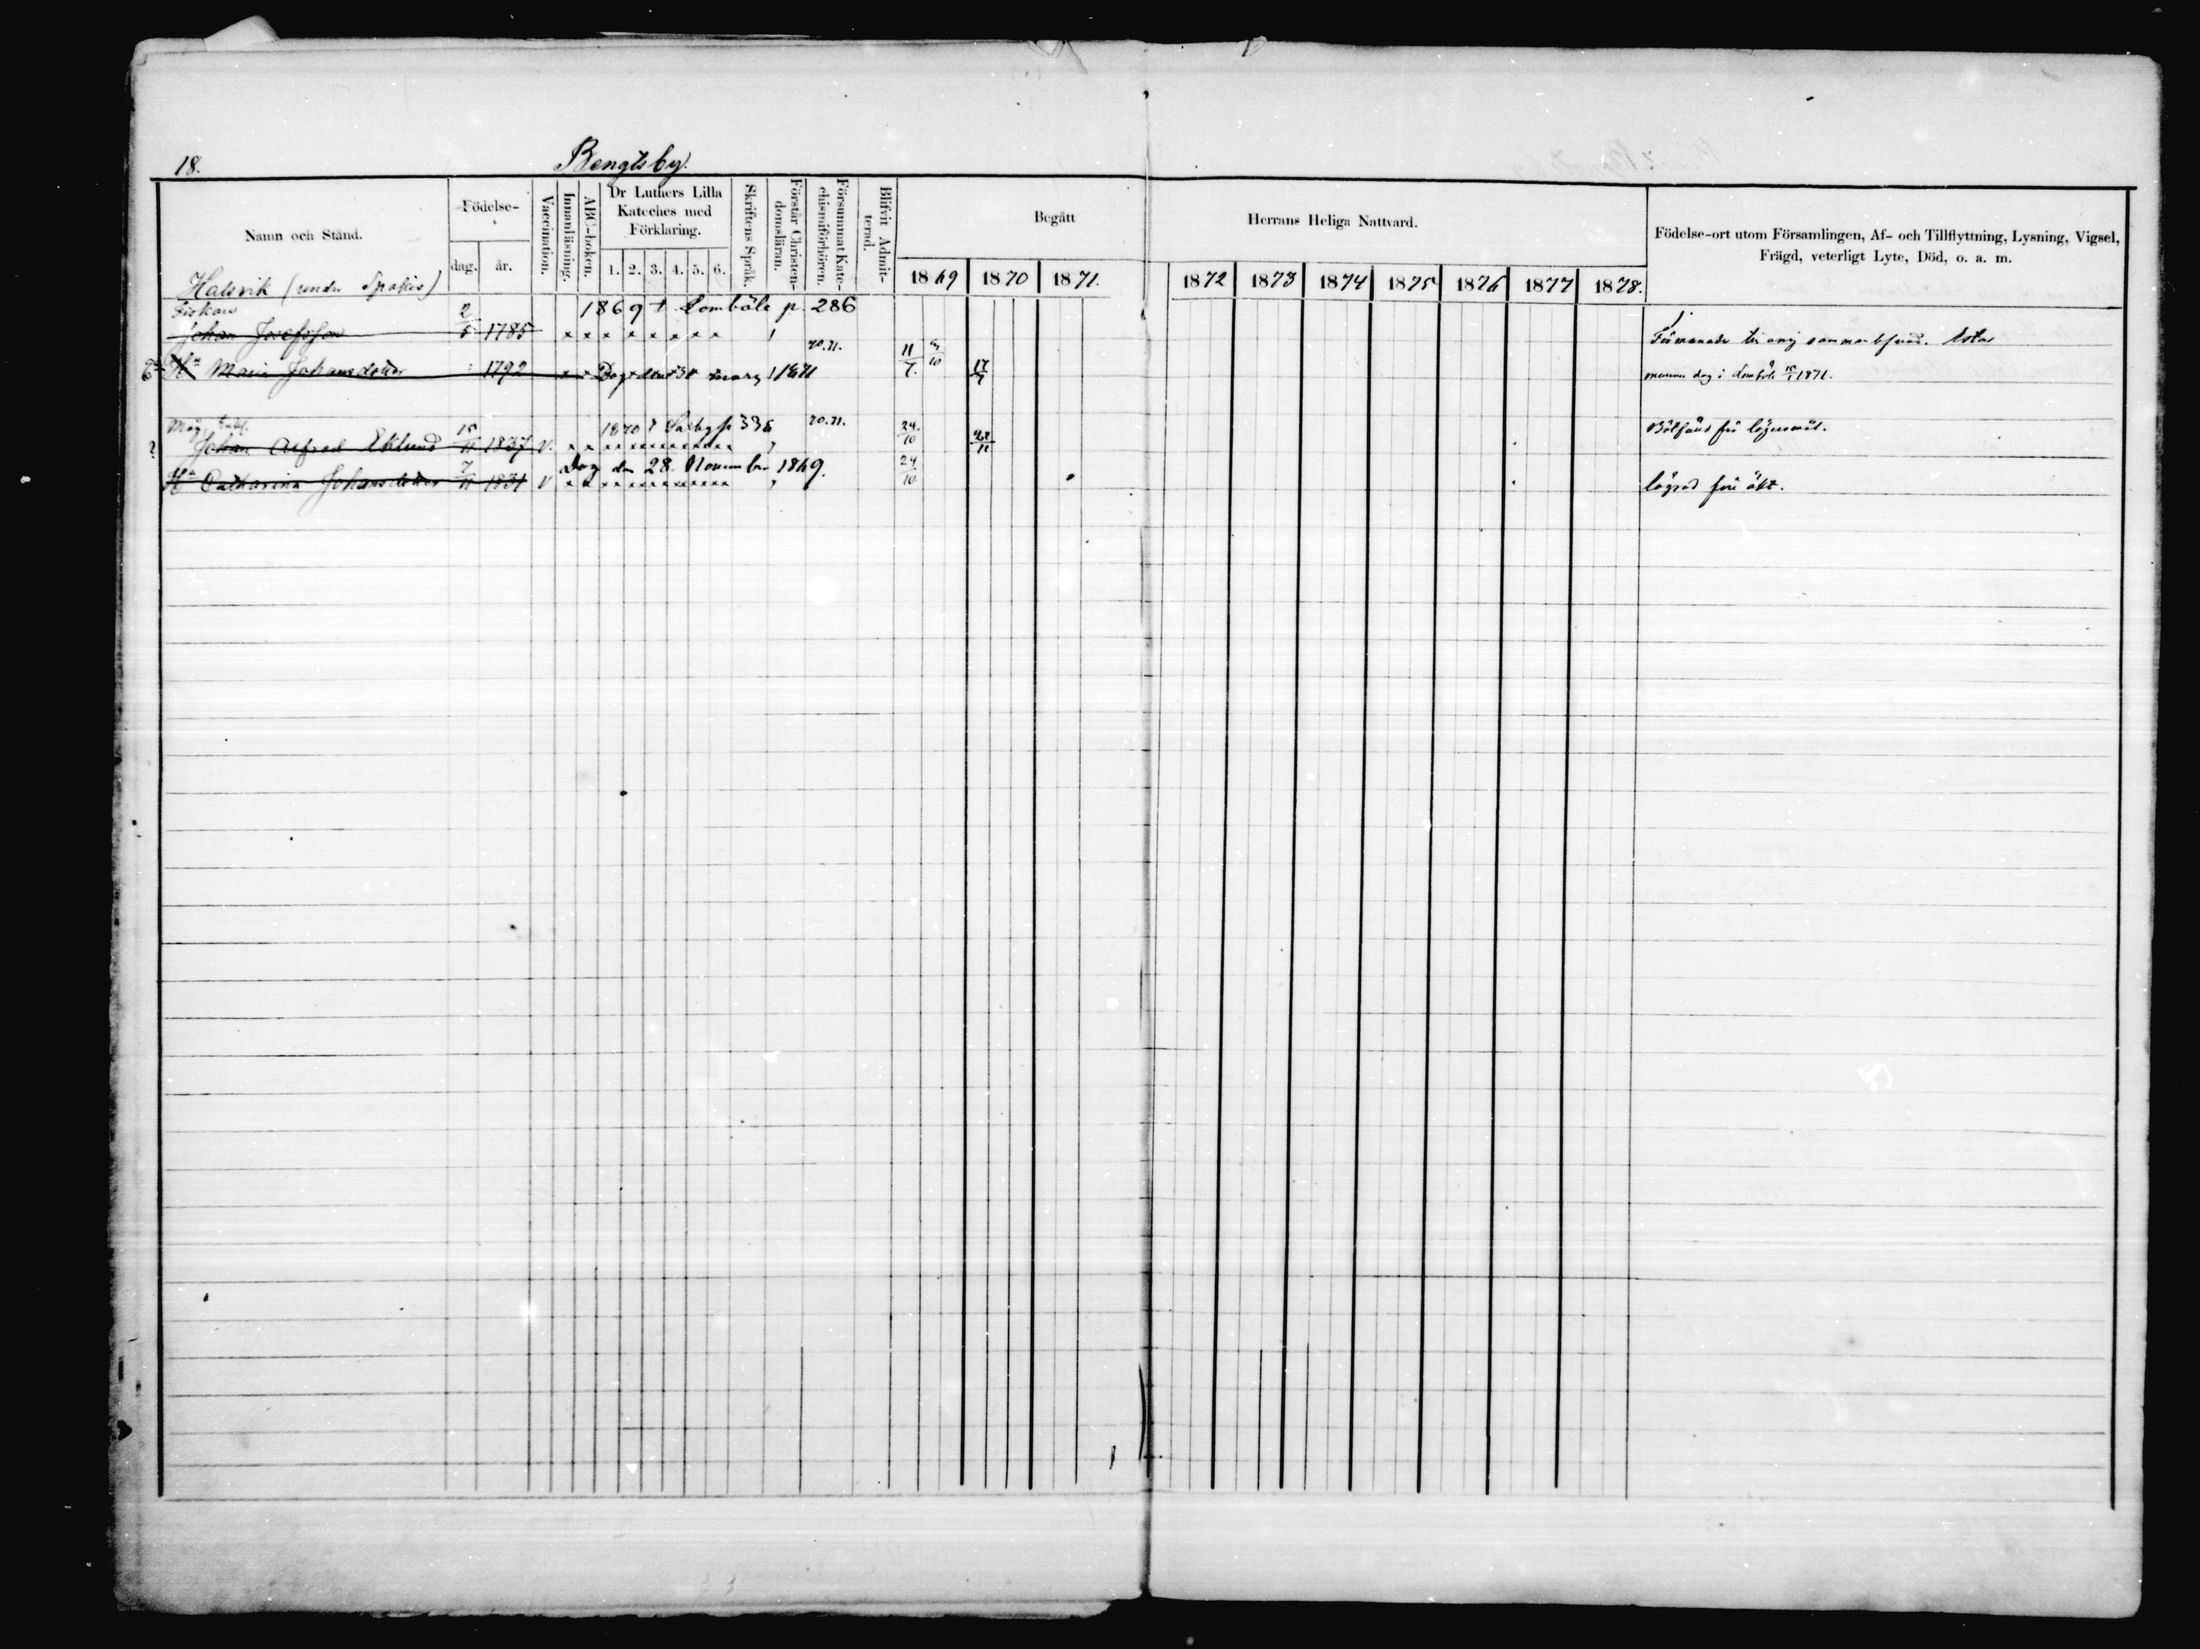 18. Bengtsby.
Namn och Stånd. Födelse- dag. år. Vaccination. Innanläsning. ABC-boken. Dr Luthers Lilla Kateches med Förklaring. 1. 2. 3. 4. 5. 6. Skriftens Språk. Förstår Christendomsläran. Försummat Katechismiförhören. Blifvit Admitterad. Begått Herrans Heliga Nattvard. Födelse-ort utom Församlingen, Af- och Tillflyttning, Lysning, Vigsel, Frägd, veterligt Lyte, Död, o. a. m.
1869 1870 1871. 1872 1873 1874 1875 1876 1877 1878.
Halsvik (under Spakis)
Fiskar 1869 t. Lomböle p. 286
Johan Josefsson 2/5 1785 x x x x x x x x
70.71.
Hu Maria Johansdotter 1792 x x Dog den 30 mars 1871 11/7. 17/7
i Lomböle 15/1 1871.
Måg 1870 t p 335 70.71. 24/10
Johan Alfred Eklund 15/11 1837 V. x x x x x x x x x x x x x x 28/11
Dog den 28 November 1869. 24/10
Hu Catharina Johansdotter 7/11 1831 V x x x x x x x x x x x x x x